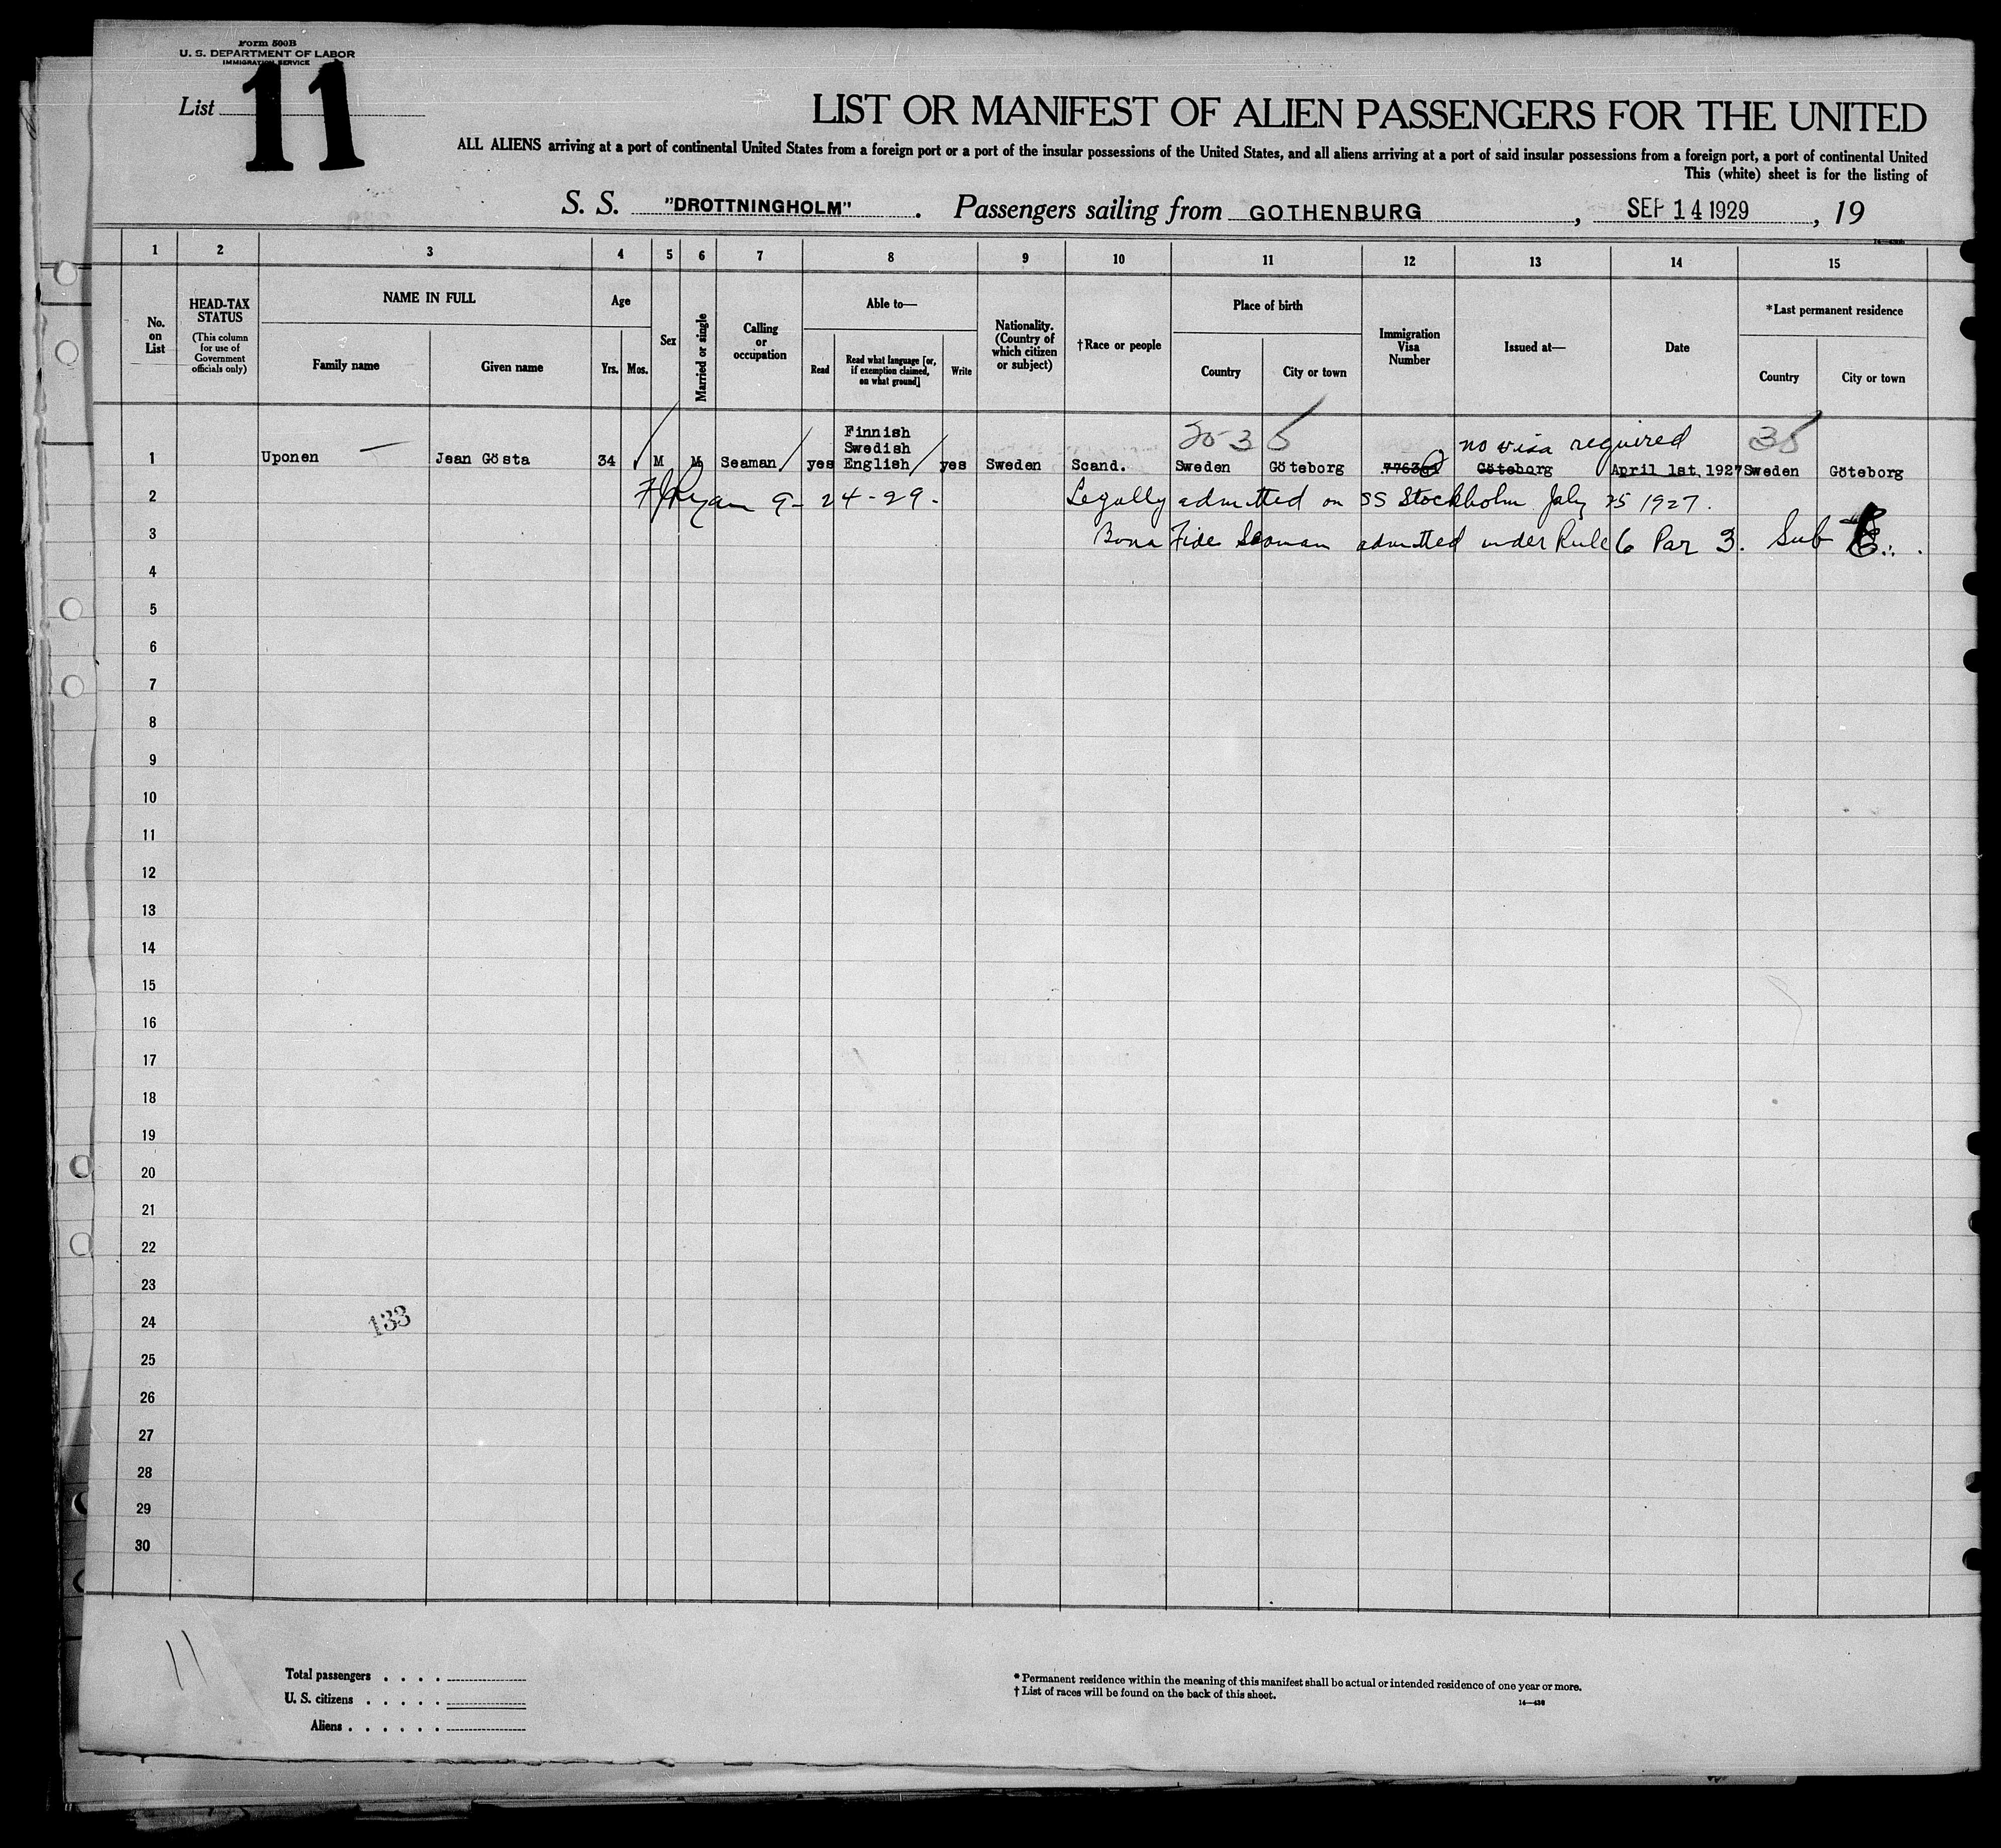 Form 500B
U. S. DEPARTMENT OF LABOR
IMMIGRATION SERVICE
List 11
LIST OR MANIFEST OF ALIEN PASSENGERS FOR THE UNITED
ALL ALIENS arriving at a port of continental United States from a foreign port or a port of the insular possessions of the United States, and all aliens arriving at a port of said insular possessions from a foreign port, a port of continental United
This (white) sheet is for the listing of
S. S. "DROTTNINGHOLM". Passengers sailing from GOTHENBURG, SEP 14 1929, 19
1 2 3 4 5 6 7 8 9 10 11 12 13 14 15
No. on List
HEAD-TAX STATUS
(This column for use of Government officials only)
NAME IN FULL
Family name
Given name
Age
Yrs. Mos.
Sex
Married or single
Calling or occupation
Able to—
Read
Read what language [or, if exemption claimed, on what ground]
Write
Nationality. (Country of which citizen or subject)
†Race or people
Place of birth
Country
City or town
Immigration Visa Number
Issued at—
Date
*Last permanent residence
Country
City or town
35 3 5 no visa required 35
Finnish
Swedish
1 Uponen — Jean Gösta 34 M M Seaman yes English yes Sweden Scand. Sweden Göteborg Göteborg April 1st. 1927 Sweden Göteborg
2 FJRyan 9-24-29. Legally admitted on SS Stockholm July 25 1927.
3 Bona Fide Seaman admitted under Rule 6 Par 3. Sub
4
5
6
7
8
9
10
11
12
13
14
15
16
17
18
19
20
21
22
23
24 133
25
26
27
28
29
30
11
Total passengers . . . .
U. S. citizens . . . . .
Aliens . . . . . .
* Permanent residence within the meaning of this manifest shall be actual or intended residence of one year or more.
† List of races will be found on the back of this sheet.
14—430